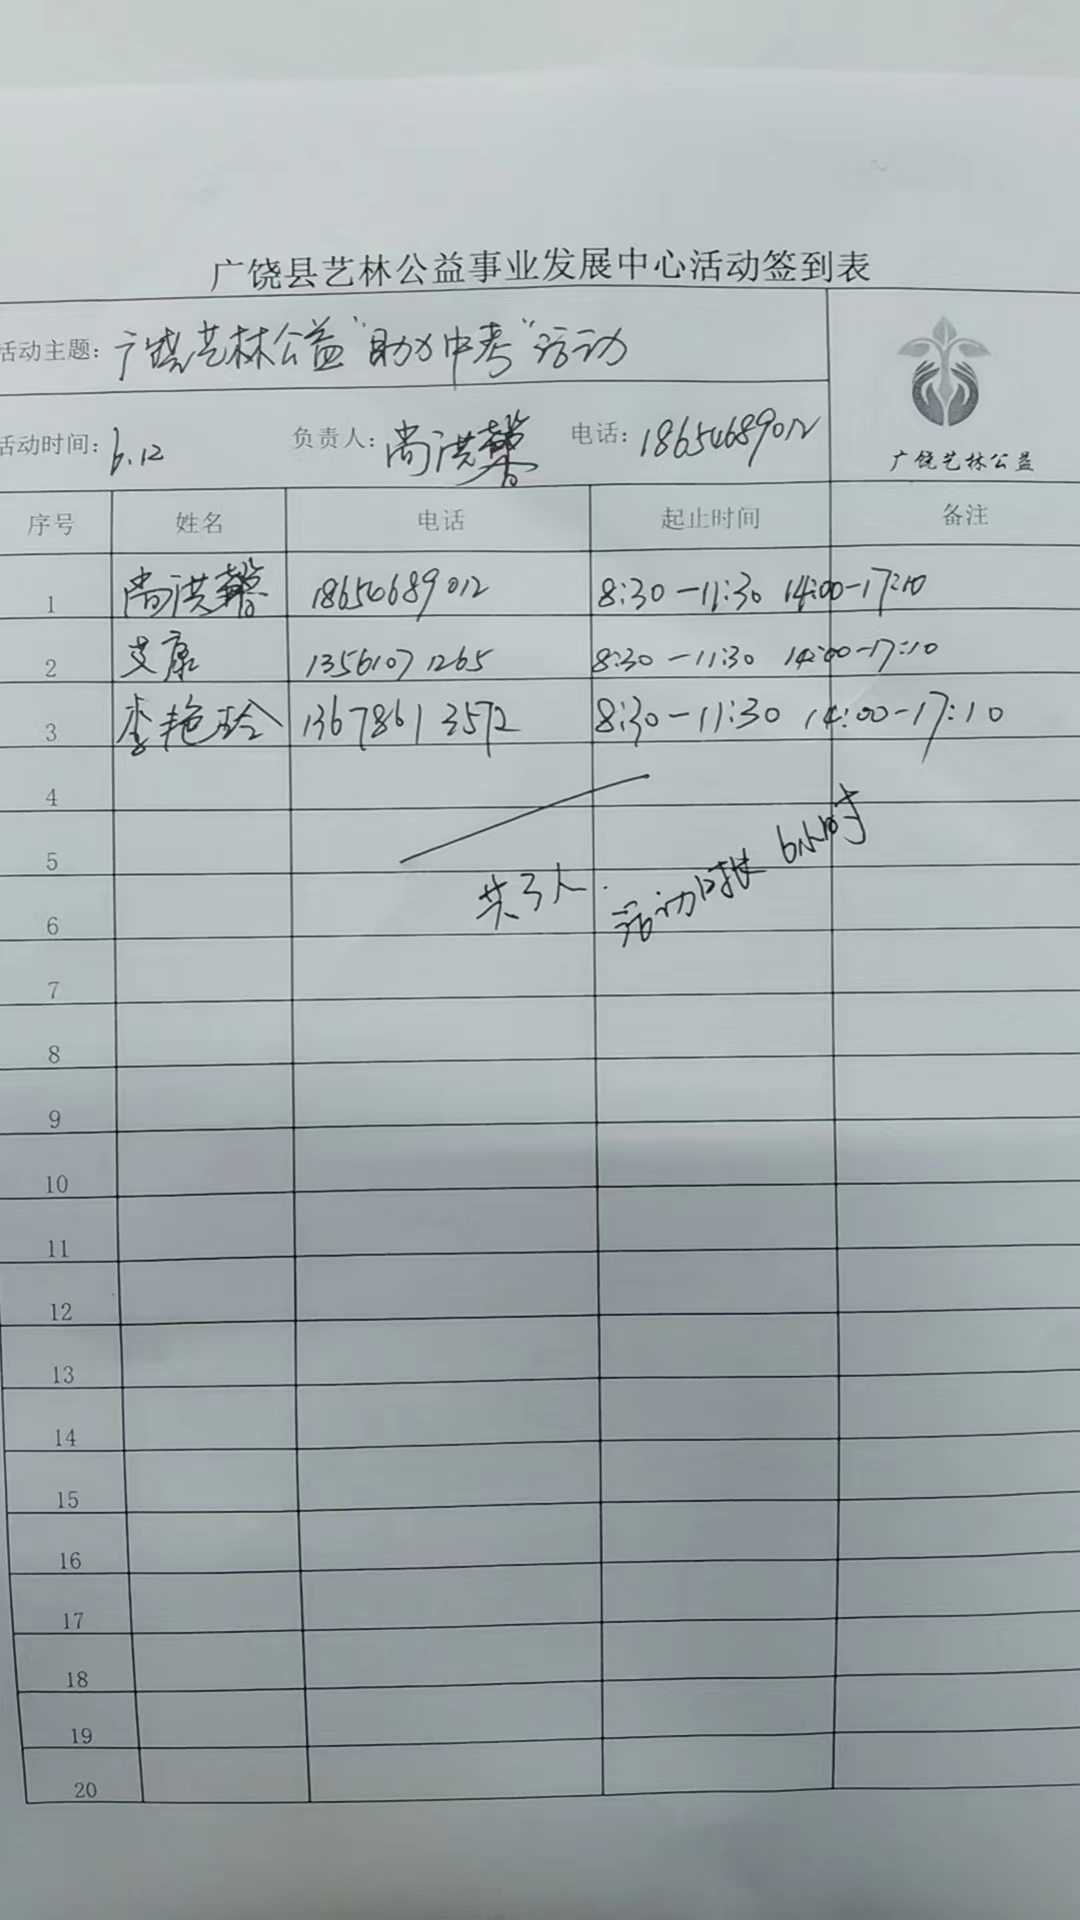 广饶县艺林公益事业发展中心活动签到表
活动主题: 广饶艺林公益"助力中考"活动
活动时间: 6.12 负责人: 尚洪馨 电话: 18654689012
广饶艺林公益
序号 姓名 电话 起止时间 备注
1 尚洪馨 18654689012 8:30-11:30 14:00-17:10
2 艾康 13561071265 8:30-11:30 14:00-17:10
3 李艳玲 13678613572 8:30-11:30 14:00-17:10
4
5
共3人. 活动时长 6小时
6
7
8
9
10
11
12
13
14
15
16
17
18
19
20